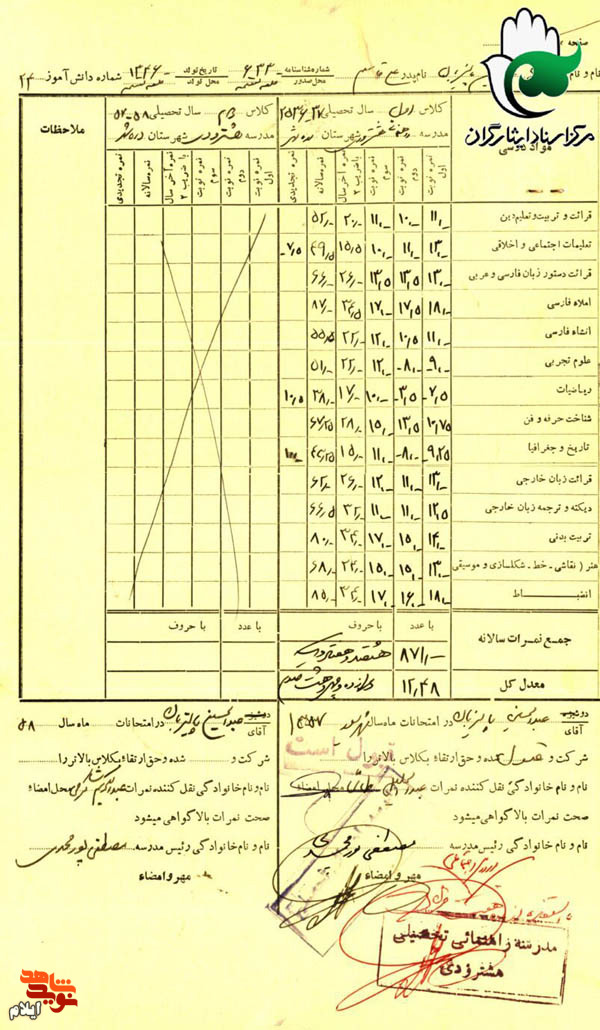 صفحه
مرکز اسناد ایثارگران
نام پدر علی
شماره شناسنامه ۶۳۳
محل صدور
تاریخ تولد ۱۳۴۶
محل تولد
شماره دانش آموز ۲۴
مواد درسی
کلاس اول سال تحصیلی ۳۷-۲۵۳۶
مدرسه هشترودی شهرستان دره شهر
کلاس دوم سال تحصیلی ۵۸-۵۷
مدرسه هشترودی شهرستان دره شهر
ملاحظات
نمره نوبت اول
نمره نوبت دوم
نمره نوبت سوم
نمره آخر سال با ضریب ۲
نمره سالانه
نمره تجدیدی
نمره نوبت اول
نمره نوبت دوم
نمره نوبت سوم
نمره آخر سال با ضریب ۲
نمره سالانه
نمره تجدیدی
قرائت و تربیت و تعلیم دین ۱۱٫- ۱۰٫- ۱۱٫- ۲۰٫- ۵۲٫-
تعلیمات اجتماعی و اخلاقی ۱۳٫- ۱۱٫- ۱۰٫- ۱۵٫۵ ۴۹٫۵ ۷٫۵
قرائت دستور زبان فارسی و عربی ۱۳٫- ۱۳٫۵ ۱۳٫۵ ۲۶٫- ۶۶٫-
املاء فارسی ۱۸٫- ۱۷٫۵ ۱۷٫- ۳۴٫۵ ۸۷٫-
انشاء فارسی ۱۱٫- ۱۰٫۵ ۱۲٫- ۲۲٫- ۵۵٫۵
علوم تجربی ۹٫- ۸٫- ۱۲٫- ۲۲٫- ۵۱٫-
ریاضیات ۷٫۵ ۳٫۵ ۱۰٫- ۱۷٫- ۳۸٫- ۱۰٫۵
شناخت حرفه و فن ۱۰٫۷۵ ۱۳٫۵ ۱۵٫- ۲۸٫- ۶۷٫۲۵
تاریخ و جغرافیا ۹٫۲۵ ۸٫- ۱۱٫- ۱۵٫-
قرائت زبان خارجی ۱۳٫- ۱۱٫- ۱۲٫- ۲۶٫- ۶۲٫-
دیکته و ترجمه زبان خارجی ۱۲٫۵ ۱۱٫- ۱۱٫- ۳۲٫- ۶۶٫۵
تربیت بدنی ۱۴٫- ۱۵٫- ۱۷٫- ۳۴٫- ۸۰٫-
هنر ( نقاشی - خط - شکلسازی و موسیقی ۱۳٫- ۱۵٫- ۱۵٫- ۶۸٫-
انضباط ۱۸٫- ۱۶٫- ۱۷٫- ۳۴٫- ۸۵٫-
با عدد با حروف با عدد با حروف
جمع نمرات سالانه ۸۷۱٫- هشتصد و هفتاد و یک
معدل کل ۱۲٫۴۸ دوازده و چهل و هشت صدم
دوشیزه
آقای عبدالحسین پالیزبان در امتحانات ماه سال شهریور ۱۳۵۷
شرکت و قبول شده و حق ارتقاء بکلاس بالاتر را
قبول است
نام و نام خانوادگی نقل کننده نمرات محل امضاء
صحت نمرات بالا گواهی میشود
نام و نام خانوادگی رئیس مدرسه مصطفی پورمحمدی
مهر و امضاء
دوشیزه
آقای عبدالحسین پالیزبان در امتحانات ماه سال ۵۸
شرکت و شده و حق ارتقاء بکلاس بالاتر را
نام و نام خانوادگی نقل کننده نمرات محل امضاء
صحت نمرات بالا گواهی میشود
نام و نام خانوادگی رئیس مدرسه مصطفی پورمحمدی
مهر و امضاء
مدرسه راهنمائی تحصیلی
هشترودی
نوید شاهد
ایلام